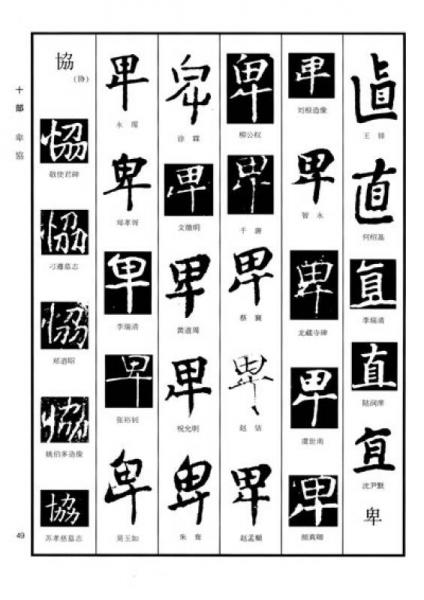 直
王铎
直
何绍基
直
李瑞清
直
陆润庠
直
沈尹默
卑
卑
刘根造像
卑
智永
卑
龙藏寺碑
卑
虞世南
卑
颜真卿
卑
柳公权
卑
卑
蔡襄
卑
赵佶
卑
赵孟頫
卑
徐霖
卑
文徵明
卑
黄道周
卑
祝允明
卑
朱耷
卑
永瑆
卑
郑孝胥
卑
李瑞清
卑
张裕钊
卑
吴玉如
協
(协)
協
敬使君碑
協
刁遵墓志
協
郑道昭
協
姚伯多造像
協
苏孝慈墓志
十部 卑協
49